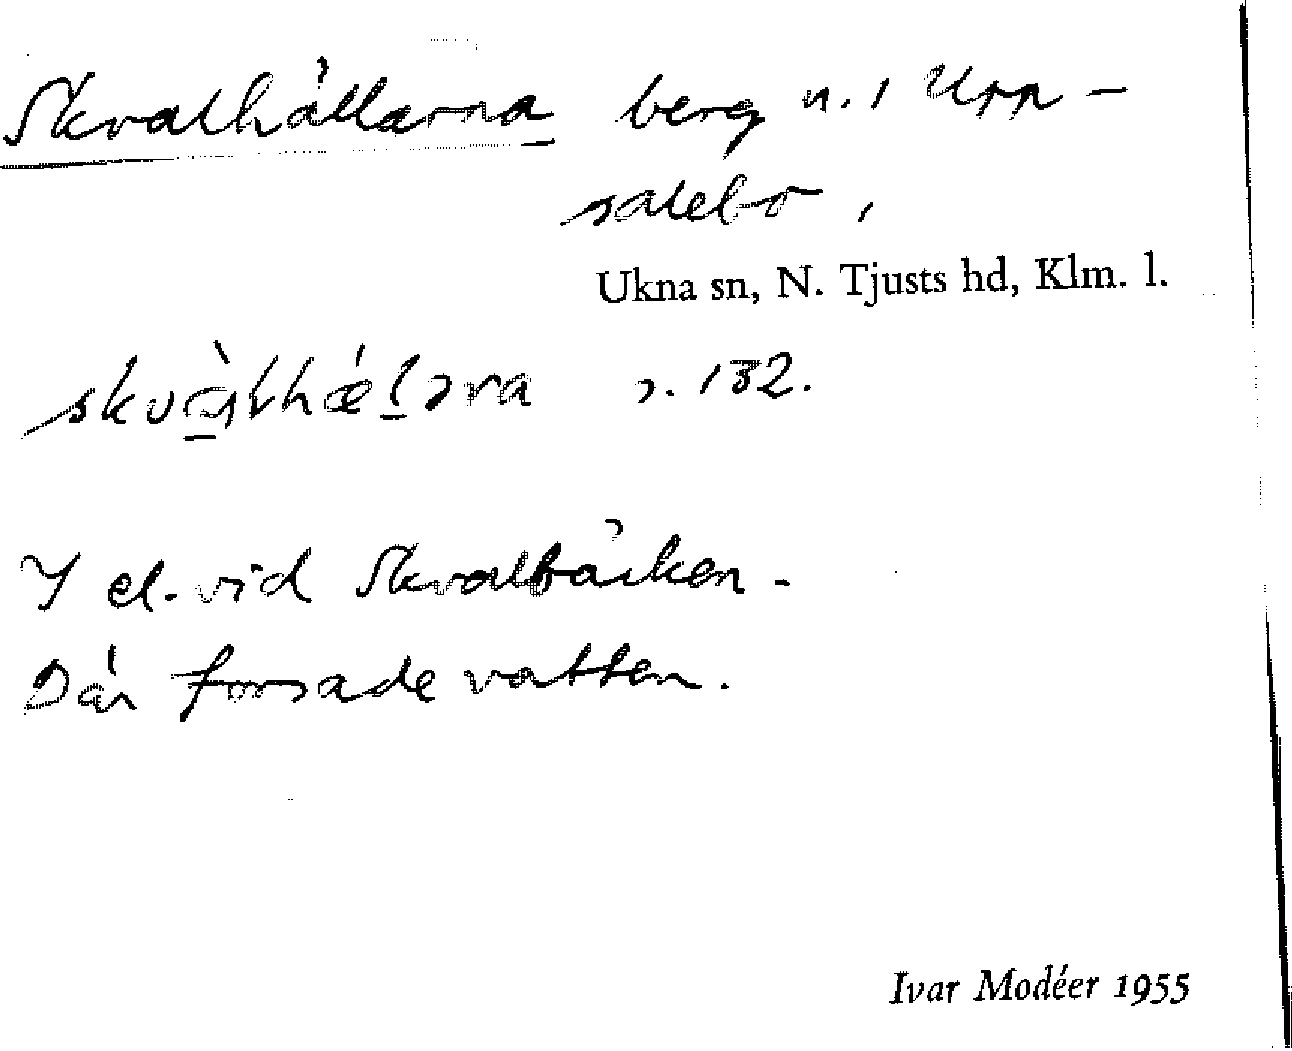 Skvalhällarna berg n. i Upp-
salebo,
Ukna sn, N. Tjusts hd, Klm. l.
s. 132.
I el. vid Skvalbäcken.
Där forsade vatten.
Ivar Modéer 1955